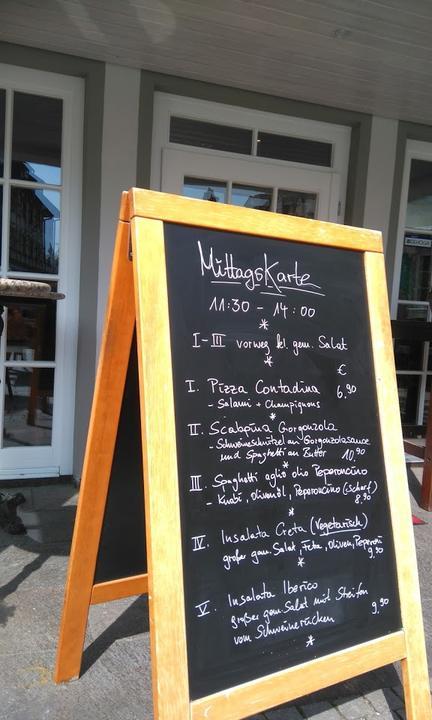 MittagsKarte
11:30 - 14:00
*
I-III vorweg kl. gem. Salat
*
€
I. Pizza Contadina 6,90
- Salami + Champignons
*
II. Scalopina Gorgonzola
- Schweineschnitzel an Gorgonzolasauce
und Spaghetti an Butter 10,90
*
III. Spaghetti aglio olio Peperoncino
- Knobi, Olivenöl, Peperoncino (scharf)
8,90
*
IV. Insalata Creta (Vegetarisch)
großer gem. Salat, Feta, Oliven, Peperoni
9,50
*
V. Insalata Iberico
großer gem. Salat mit Streifen
vom Schweinerücken 9,90
*